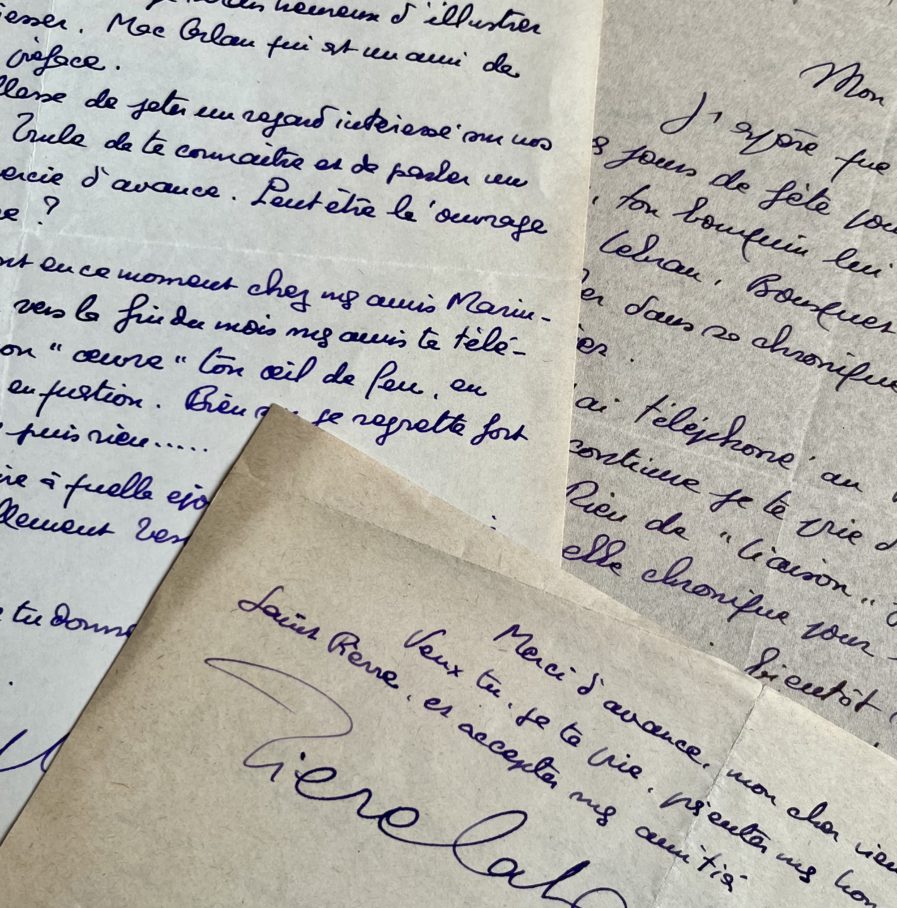 heureux d'illustrer
esser. Mac Orlan qui est un ami de
préface.
llesse de jeter un regard intéressé sur nos
de te connaître et de parler un
ercie d'avance. Peut être l'ouvrage
e ?
nt en ce moment chez mes amis Marin-
vers la fin du mois mes amis te télé-
on " œuvre " ton œil de feu, en
en question. Bien je regrette fort
puis rien.....
ire à quelle épo
llement
e tu donne
Mon
J'espère que
s jours de fête
, ton bouquin lui
Bousquet
er dans sa chronique
ier.
ai téléphoné au
continue je te prie d
Rien de "liaison"
elle chronique pour
bientôt
Merci d'avance, mon cher vieu
Veux tu, je te prie, présenter mes hom
Saint Pierre, et accepter mes amitiés
Pierre Lab